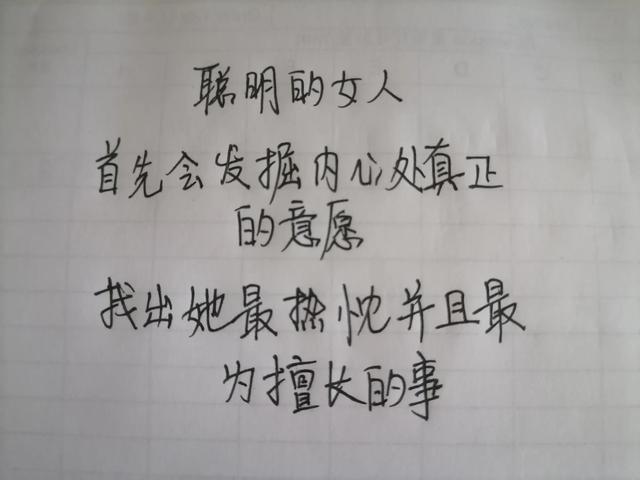 聪明的女人
首先会发掘内心处真正
的意愿
找出她最热忱并且最
为擅长的事